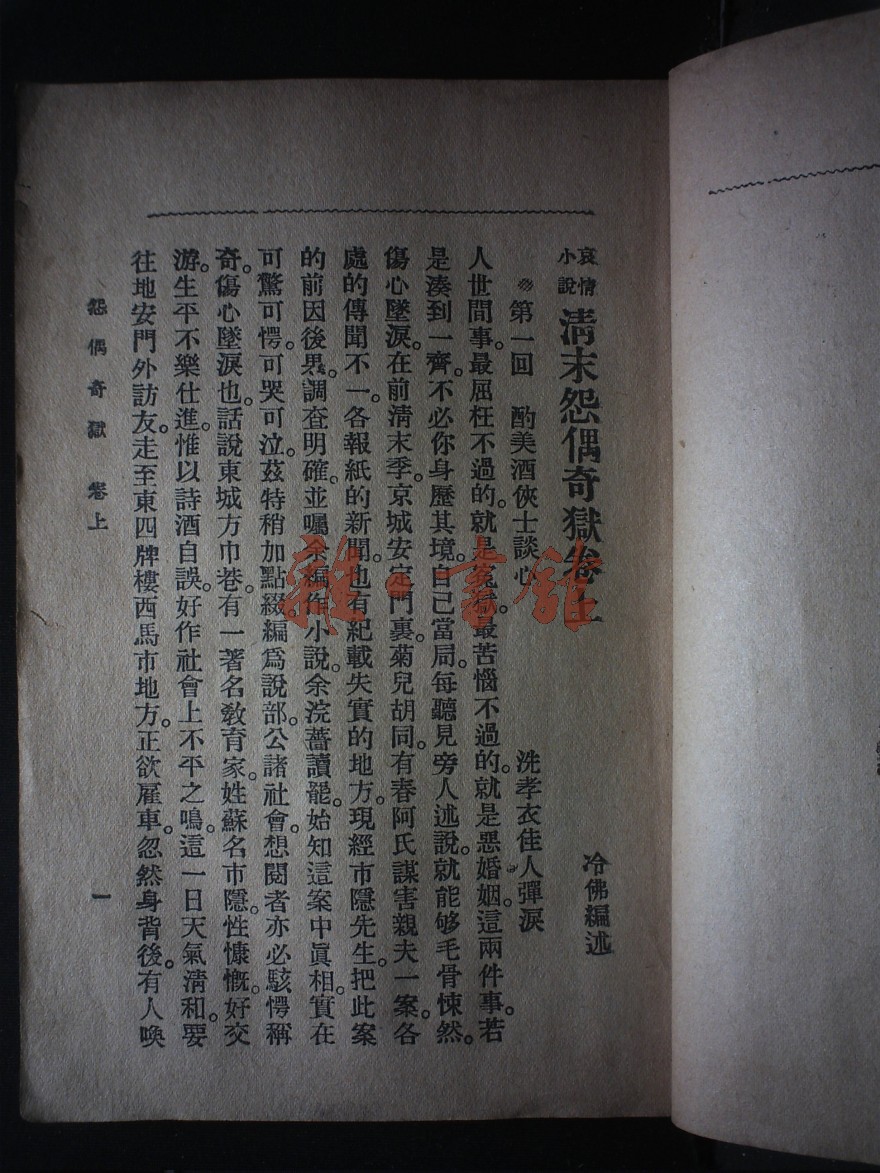 哀情小說 清末怨偶奇獄卷上
冷佛編述
第一回 酌美酒俠士談心 洗孝衣佳人彈淚
人世間事。最屈枉不過的。就是冤獄。最苦惱不過的。就是惡婚姻。這兩件事。若
是湊到一齊。不必你身歷其境。自己當局。每聽見旁人述說。就能够毛骨悚然。
傷心墜淚。在前清末季。京城安定門裏。菊兒胡同。有春阿氏謀害親夫一案。各
處的傳聞不一。各報紙的新聞。也有紀載失實的地方。現經市隱先生。把此案
的前因後果。調查明確。並囑余編作小說。余浣薔讀罷。始知這案中眞相。實在
可驚可愕。可哭可泣。茲特稍加點綴。編爲說部。公諸社會。想閱者亦必駭愕稱
奇。傷心墜淚也。話說東城方巾巷。有一著名敎育家。姓蘇名市隱。性慷慨。好交
游。生平不樂仕進。惟以詩酒自誤。好作社會上不平之鳴。這一日天氣淸和。要
往地安門外訪友。走至東四牌樓西馬市地方。正欲雇車。忽然身背後有人喚
怨偶奇獄 卷上
一
雜·書館